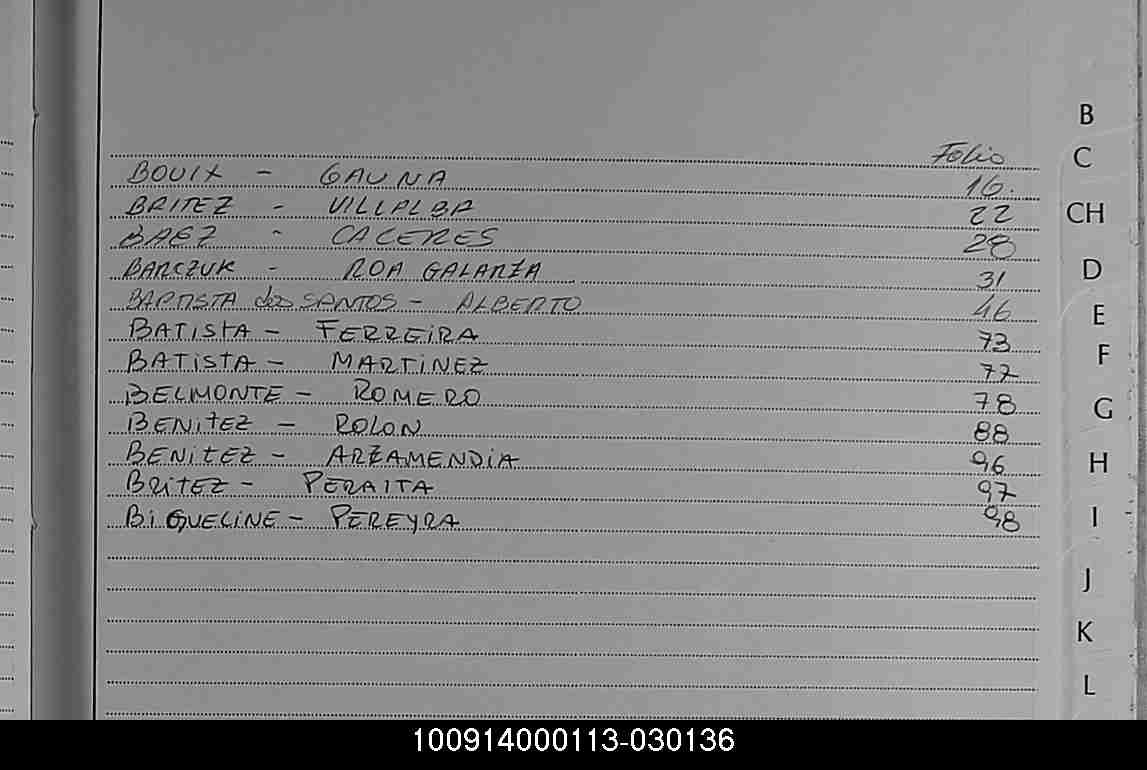 Folio
BOUIX - GAUNA 16.
BRITEZ - VILLALBA 22
BAEZ - CACERES 28
BARCZUK - ROA GALARZA 31
BAPTISTA dos SANTOS - ALBERTO 46
BATISTA - FERREIRA 73
BATISTA - MARTINEZ 77
BELMONTE - ROMERO 78
BENITEZ - ROLON 88
BENITEZ - ARZAMENDIA 96
BRITEZ - PERAITA 97
BIGUELINE - PEREYRA 98
B
C
CH
D
E
F
G
H
I
J
K
L
100914000113-030136